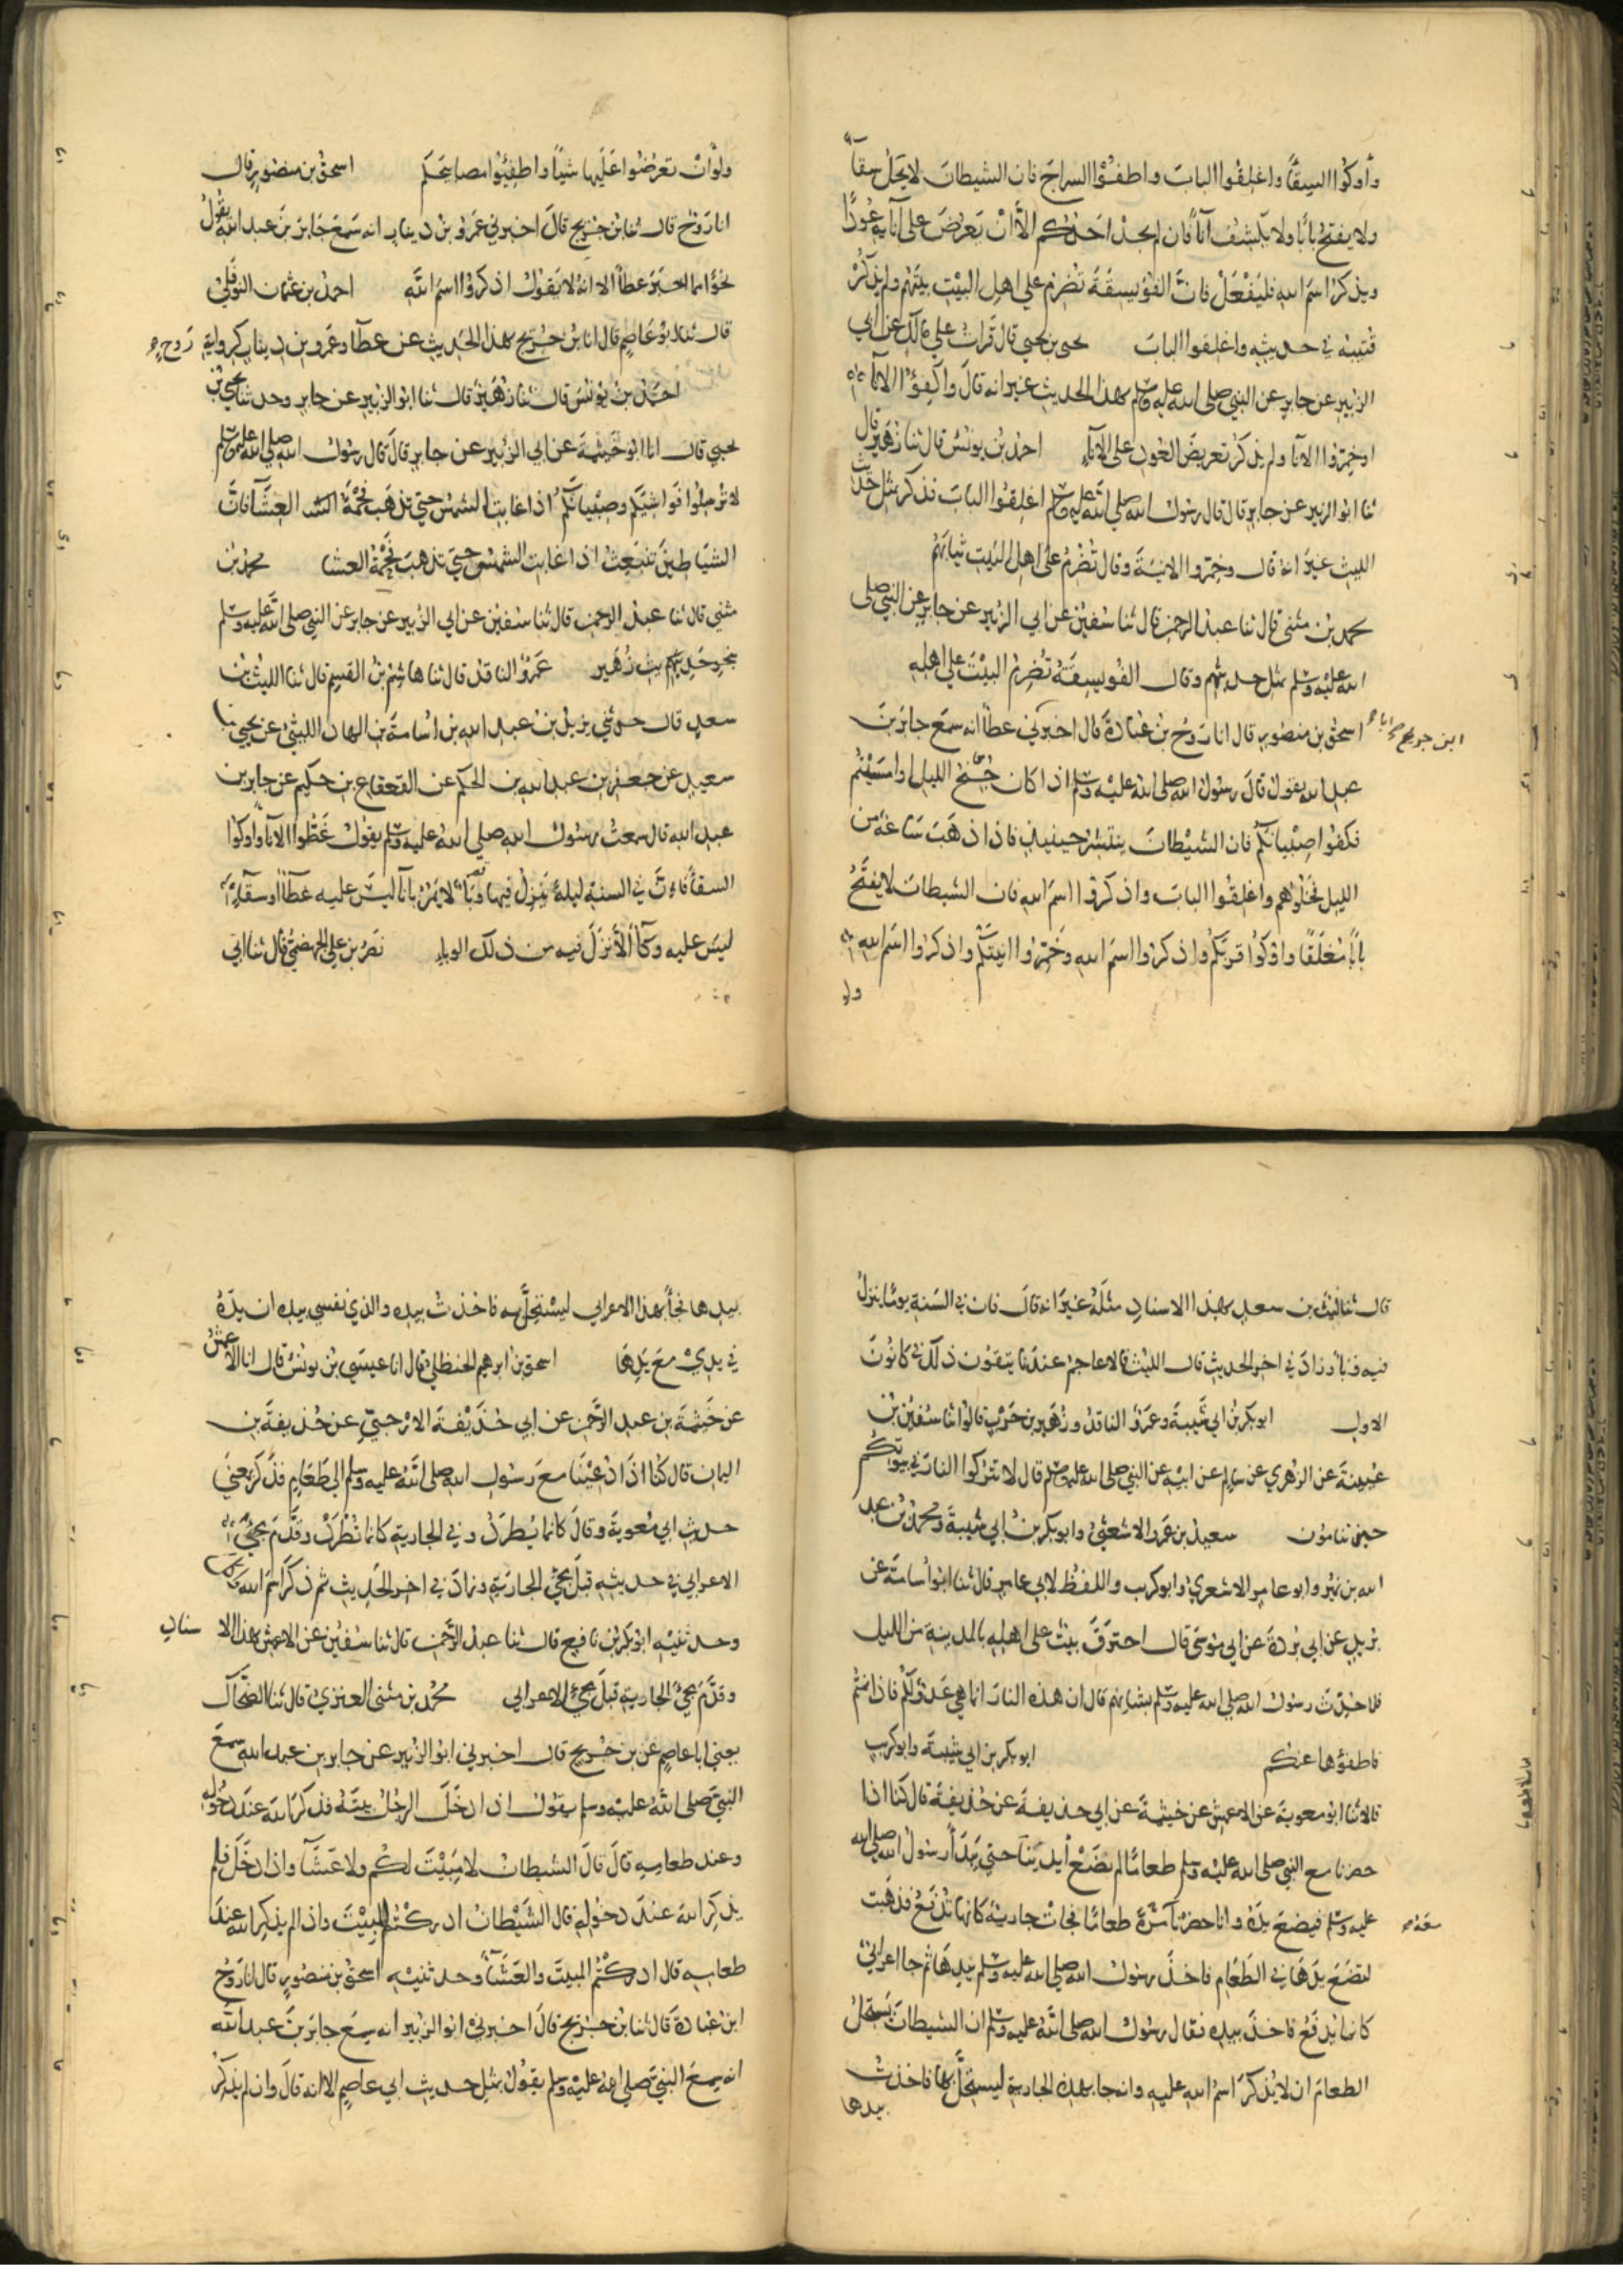 وأوكوا السقا واغلقوا الباب واطفئوا السراج فان الشيطان لا يحل سقآ
ولا يفتح بابًا ولا يكشف انآ فان لم يجد احدكم الّا أن يعرض على انآيه عودًا
ويذكر اسم الله فليفعل فان الفويسقة تضرم على اهل البيت بيتهم ولم يذكر
قتيبة في حديثه واغلقوا الباب يحيى بن يحيى قال قرات على مالك عن ابي
الزبير عن جابر عن النبي صلى الله عليه وسلم بهذا الحديث غير انه قال واكفؤا الانآ
او خمروا الانآ ولم يذكر تعريض العود على الانآء احمد بن يونس قال ثنا زهير قال
ثنا ابو الزبير عن جابر قال قال رسول الله صلى الله عليه وسلم اغلقوا الباب فذكر مثل حديث
الليث غير انه قال وخمروا الانية وقال تضرم على اهل البيت ثيابهم
محمد بن مثنى قال ثنا عبد الرحمن قال ثنا سفين عن ابي الزبير عن جابر عن النبي صلى
الله عليه وسلم بمثل حديثهم وقال الفويسقة تضرم البيت على اهله
اسحق بن منصور قال انا روح بن عبادة قال اخبرني عطآ انه سمع جابر بن
ابن جريج صح انا
عبد الله يقول قال رسول الله صلى الله عليه وسلم اذا كان جنح الليل او امسيتم
فكفوا صبيانكم فان الشيطان ينتشر حينيذ فاذا ذهب ساعة من
الليل فخلوهم واغلقوا الباب واذكروا اسم الله فان الشيطان لا يفتح
بابًا مغلقًا واوكوا قربكم واذكروا اسم الله وخمروا انيتكم واذكروا اسم الله
ولو
ولو ان تعرضوا عليها شيئًا واطفئوا مصابيحكم اسحق بن منصور قال
انا روح قال ثنا بن جريج قال اخبرني عمرو بن دينار انه سمع جابر بن عبد الله يقول
نحوًا مما اخبر عطآ الا انه لا يقول اذكروا اسم الله احمد بن عثمان النوفلي
قال ثنا ابو عاصم قال انا بن جريج بهذا الحديث عن عطآ وعمرو بن دينار كرواية روح
احمد بن يونس قال ثنا زهير قال ثنا ابو الزبير عن جابر وحدثنا يحيى بن
يحيى قال انا ابو خيثمة عن ابي الزبير عن جابر قال قال رسول الله صلى الله عليه وسلم
لا ترسلوا فواشيكم وصبيانكم اذا غابت الشمس حتى تذهب فحمة العشآ فان
الشياطين تنبعث اذا غابت الشمس حتى تذهب فحمة العشا محمد بن
مثنى قال ثنا عبد الرحمن قال ثنا سفين عن ابي الزبير عن جابر عن النبي صلى الله عليه وسلم
بنحو حديث زهير عمرو الناقد قال ثنا هاشم بن القسم قال ثنا الليث بن
سعد قال حدثني يزيد بن عبد الله بن اسامة بن الهاد الليثي عن يحيى بن
سعيد عن جعفر بن عبد الله بن الحكم عن القعقاع بن حكيم عن جابر بن
عبد الله قال سمعت رسول الله صلى الله عليه وسلم يقول غطوا الانآ واوكوا
السقآ فان في السنة ليلة ينزل فيها وبآ لا يمر بانآ ليس عليه غطآ او سقآء
ليس عليه وكآ الا نزل فيه من ذلك الوباء نصر بن علي الجهضمي قال ثنا ابي
قال ثنا ليث بن سعد بهذا الاسناد مثله غير انه قال فان في السنة يومًا ينزل
فيه وبآ وزاد في اخر الحديث قال الليث فالاعاجم عندنا يتقون ذلك في كانون
الاول ابو بكر بن ابي شيبة وعمرو الناقد وزهير بن حرب قالوا ثنا سفين بن
عيينة عن الزهري عن سالم عن ابيه عن النبي صلى الله عليه وسلم قال لا تتركوا النار في بيوتكم
حين تنامون سعيد بن عمرو الاشعثي وابو بكر بن ابي شيبة ومحمد بن عبد
الله بن نمير وابو عامر الاشعري وابو كريب واللفظ لابي عامر قال ثنا ابو اسامة عن
بريد عن ابي بردة عن ابي موسى قال احترق بيت على اهله بالمدينة من الليل
فلما حدث رسول الله صلى الله عليه وسلم بشانهم قال ان هذه النار انما هي عدو لكم فاذا نمتم
فاطفؤها عنكم ابو بكر بن ابي شيبة وابو كريب
قالا ثنا ابو معوية عن الاعمش عن خيثمة عن ابي حذيفة عن حذيفة قال كنا اذا
حضرنا مع النبي صلى الله عليه وسلم طعامًا لم نضع أيدينا حتى يبدأ رسول الله صلى الله
عليه وسلم فيضع يده وانا حضرنا مرة طعامًا فجات جارية كانها تدفع فذهبت
معه
لتضع يدها في الطعام فاخذ رسول الله صلى الله عليه وسلم بيدها ثم جا اعرابي
كانما يدفع فاخذ بيده فقال رسول الله صلى الله عليه وسلم ان الشيطان يستحل
الطعام ان لا يذكر اسم الله عليه وانه جا بهذه الجارية ليستحل بها فاخذت
بيدها
بيدها فجآ بهذا الاعرابي ليستحل به فاخذت بيده والذي نفسي بيده ان يده
في يدي مع يدها اسحق بن ابرهيم الحنظلي قال انا عيسى بن يونس قال انا الاعمش
عن خيثمة بن عبد الرحمن عن ابي حذيفة الارحبي عن حذيفة بن
اليمان قال كنا اذا دعينا مع رسول الله صلى الله عليه وسلم الى طعام فذكر بمعنى
حديث ابي معوية وقال كانما يطرد وفي الجارية كانما تطرد وقدم مجئ
الاعرابي في حديثه قبل مجئ الجارية وزاد في اخر الحديث ثم ذكر اسم الله واكل
وحدثنيه ابو بكر بن نافع قال ثنا عبد الرحمن قال ثنا سفين عن الاعمش بهذا الاسناد
وقدم مجئ الجارية قبل مجئ الاعرابي محمد بن مثنى العنزي قال ثنا الضحاك
يعني ابا عاصم عن بن جريج قال اخبرني ابو الزبير عن جابر بن عبد الله سمع
النبي صلى الله عليه وسلم يقول اذا دخل الرجل بيته فذكر الله عند دخوله
وعند طعامه قال قال الشيطان لا مبيت لكم ولا عشآ واذا دخل فلم
يذكر الله عند دخوله قال الشيطان ادركتم المبيت واذا لم يذكر الله عند
طعامه قال ادركتم المبيت والعشآ وحدثنيه اسحق بن منصور قال انا روح
ابن عبادة قال ثنا بن جريج قال اخبرني ابو الزبير انه سمع جابر بن عبد الله
انه سمع النبي صلى الله عليه وسلم يقول بمثل حديث ابي عاصم الا انه قال وان لم يذكر